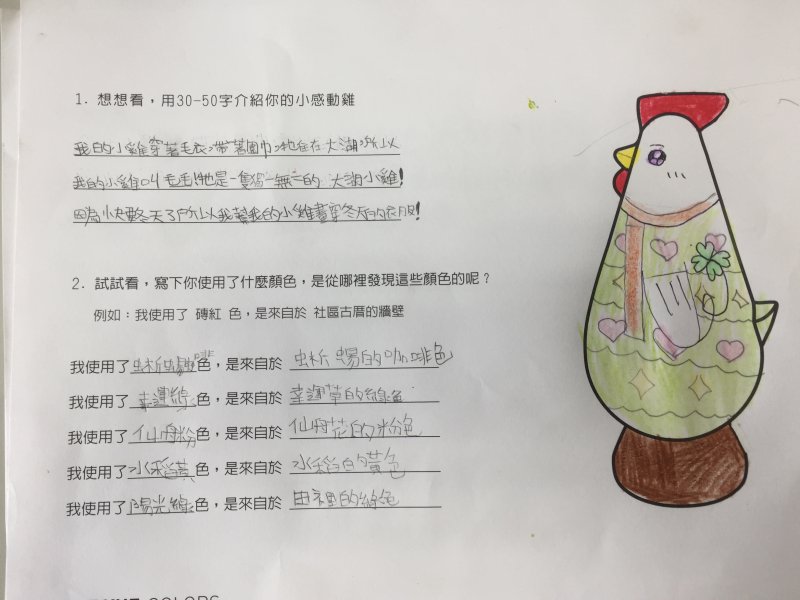 1. 想想看，用30-50字介紹你的小感動雞
我的小雞穿著毛衣，帶著圍巾，牠住在大湖，所以
我的小雞叫毛毛!牠是一隻獨一無二的大湖小雞!
因為快要冬天了所以我幫我的小雞畫穿冬天的衣服!
2. 試試看，寫下你使用了什麼顏色，是從哪裡發現這些顏色的呢？
例如：我使用了 磚紅 色，是來自於 社區古厝的牆壁
我使用了蜥蜴啡色，是來自於 蜥蜴的咖啡色
我使用了幸運綠色，是來自於 幸運草的綠色
我使用了仙丹粉色，是來自於 仙丹花的粉色
我使用了水稻黃色，是來自於 水稻的黃色
我使用了陽光綠色，是來自於 田裡的綠色
COLORS